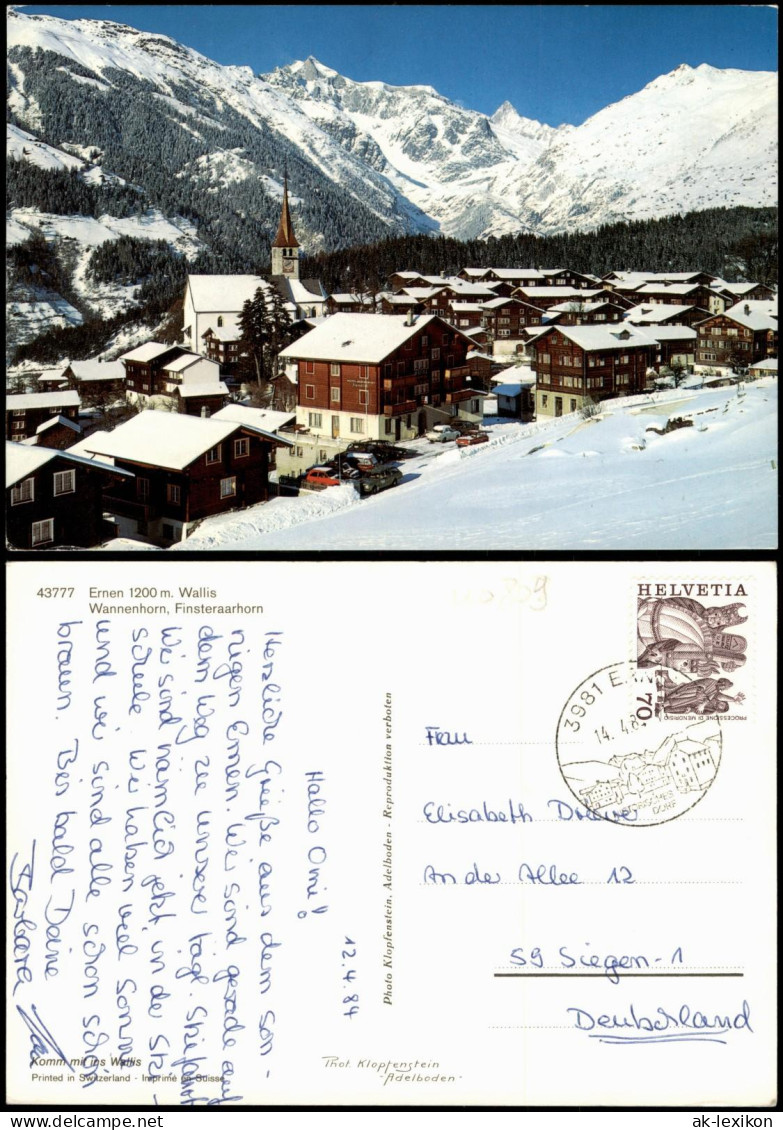 43777 Ernen 1200 m. Wallis
Wannenhorn, Finsteraarhorn
12.4.84
Hallo Omi!
Herzliche Grüße aus dem son-
nigen Ernen. Wir sind gerade auf
dem Weg zu unserer tägl. Skifahrt
Wir sind nämlich jetzt in der Ski-
schule. Wir haben viel Sonne
und wir sind alle schon schön
braun. Bis bald Deine
Barbara
Komm mit ins Wallis
Printed in Switzerland - Imprimé en Suisse
Photo Klopfenstein, Adelboden - Reproduktion verboten
Phot. Klopfenstein
-Adelboden-
HELVETIA
70
PROCESSIONE DI MENDRISIO
3981
14.4.84
DORF
Frau
Elisabeth
An der Allee 12
59 Siegen-1
Deutschland
ak-lexikon